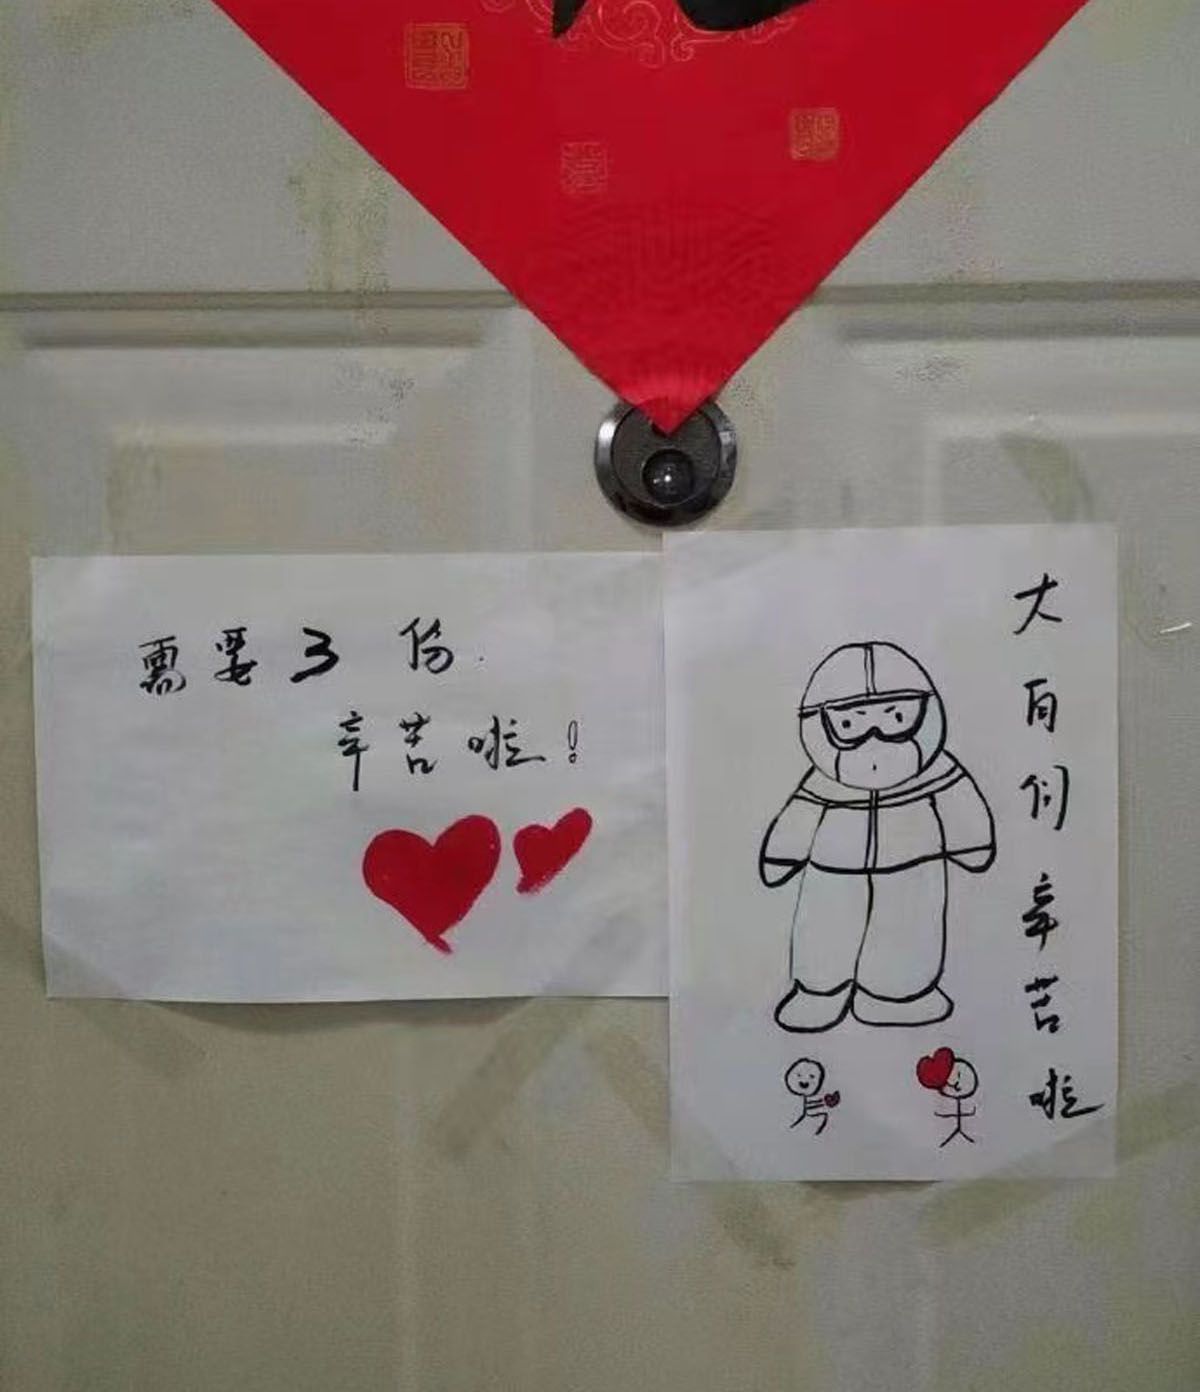 需要3份.
辛苦啦!
大白们辛苦啦